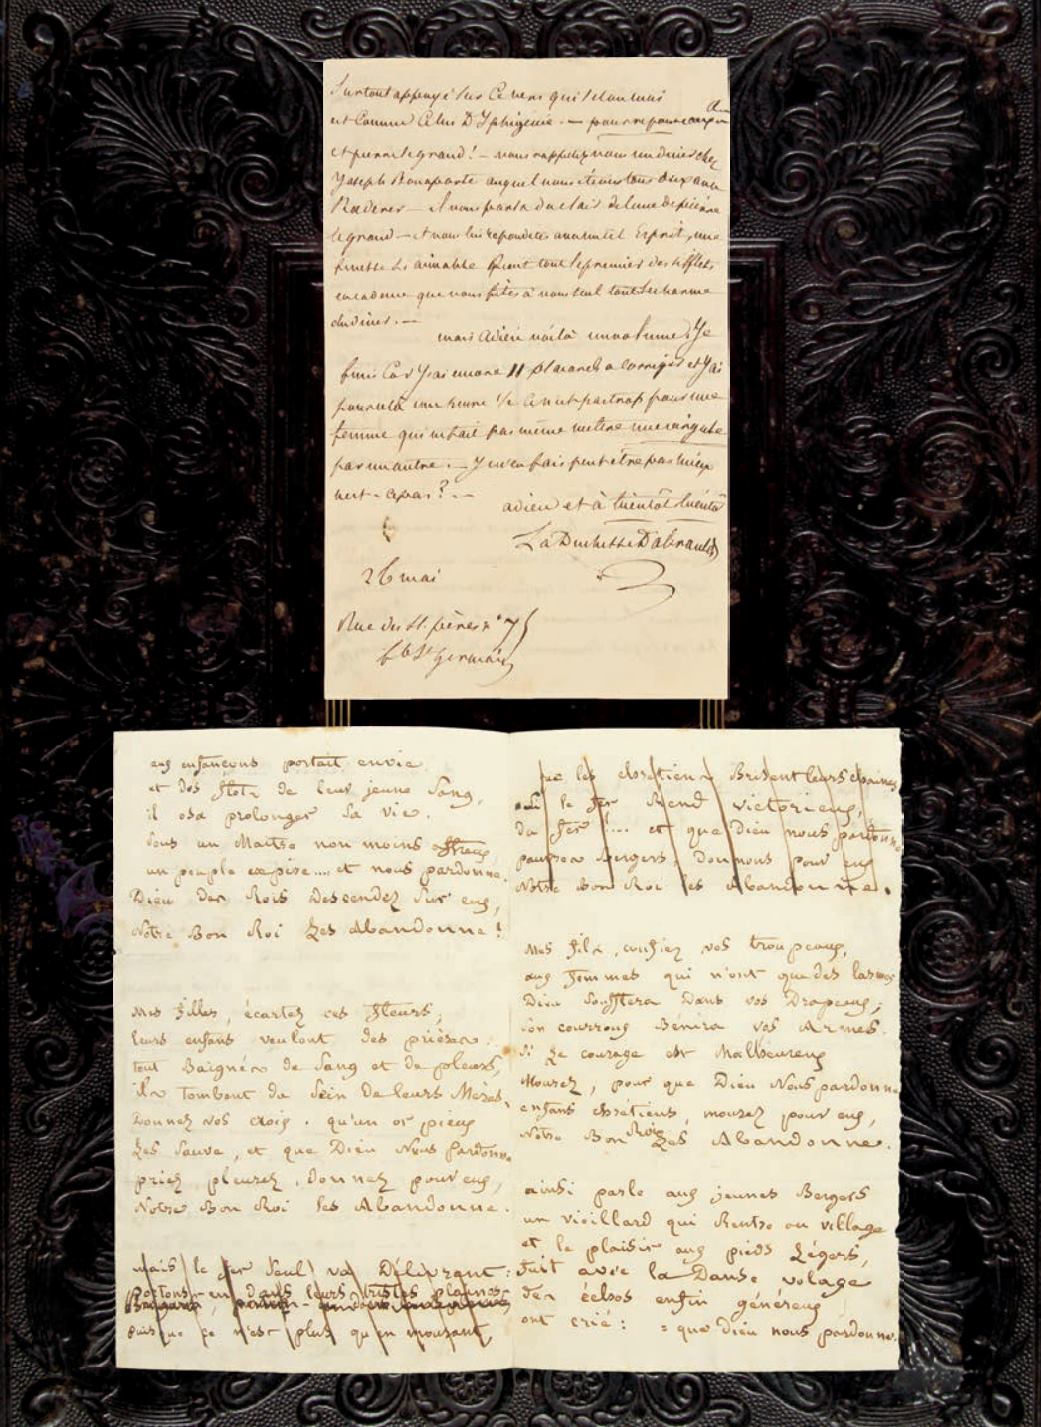 Surtout appuyé sur ce vers qui selon moi
est comme celui D'Yphigenie. — pour
et pierre le grand! — vous rappelez vous un diner chez
Joseph Bonaparte auquel nous étions tous deux avec
Rœderer — il nous parla du clair de lune de pierre
le grand — et vous lui repondites avec un tel Esprit, une
finesse si aimable tout le premier des sifflets
que vous fûtes à vous seul tout le charme
du diner. —
mais adieu voilà un volume. Je
finis Car J'ai encore 11 placards a corriger et J'ai
pour cela une heure 1/2 Ce n'est pas trop pour une
femme qui ne fait pas même mettre une virgule
par un autre. — Je n'en fais peut être pas mieux
n'est-ce pas? —
adieu et à bientôt bientôt
La Duchesse D'abrantès
26 mai
Rue des St. pères n° 75
fb St germain
aux enfançons portait envie
et des flots de leur jeune Sang,
il osa prolonger sa vie.
Sous un Maitre non moins affreux
un peuple expire.... et nous pardonne.
Dieu des Rois Descendez Sur eux,
Notre Bon Roi Les Abandonne!
Mes filles, écartez ces fleurs,
leurs enfans veulent des prières.
tout Baignés de Sang et de pleurs,
ils tombent du Sein de leurs Mères.
Donnez vos croix. qu'un or pieux
Les Sauve, et que Dieu Nous Pardonne
priez, pleurez, donnez pour eux,
Notre Bon Roi les Abandonne.
mais le fer Seul va Délivrant:
portons-en dans leurs tristes plaines
puisque ce n'est plus qu'en mourant,
que les chrétiens Brisent leurs chaines
oui le fer Rend victorieux,
du fer!.... et que Dieu nous pardonne
pauvres Bergers, donnons pour eux
Notre Bon Roi les Abandonne.
Mes fils, confiez vos troupeaux,
aux femmes qui n'ont que des larmes
Dieu Soufflera Dans vos Drapeaux;
Son courroux Bénira vos Armes.
Si Le courage est Malheureux
Mourez, pour que Dieu Nous pardonne
enfans chrétiens, mourez pour eux,
Notre Bon Roi Les Abandonne.
ainsi parle aux jeunes Bergers
un vieillard qui Rentre au village
et le plaisir aux pieds Légers,
fuit avec la Danse volage
des échos enfin généreux
ont crié: = que Dieu nous pardonne.